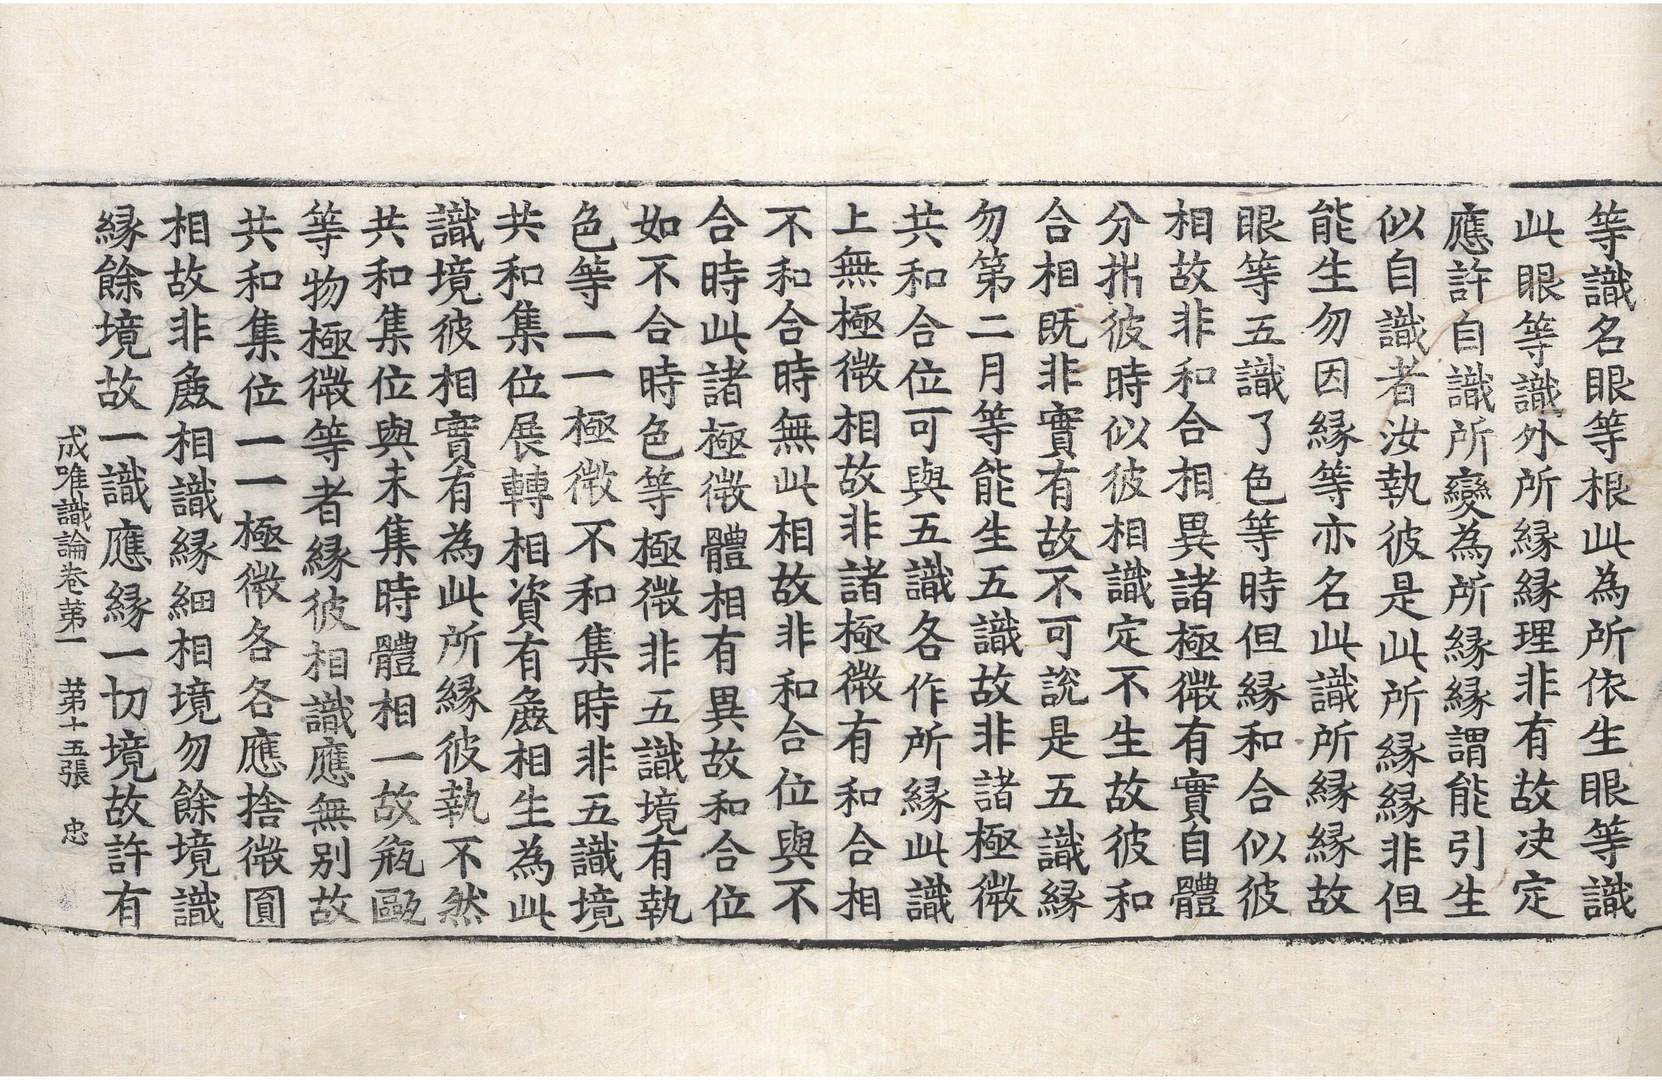 等識名眼等根此為所依生眼等識
此眼等識外所縁縁理非有故决定
應許自識所變為所縁縁謂能引生
似自識者汝執彼是此所縁縁非但
能生勿因縁等亦名此識所縁縁故
眼等五識了色等時但縁和合似彼
相故非和合相異諸極微有實自體
分㭊彼時似彼相識定不生故彼和
合相既非實有故不可說是五識縁
勿第二月等能生五識故非諸極微
共和合位可與五識各作所縁此識
上無極微相故非諸極微有和合相
不和合時無此相故非和合位與不
合時此諸極微體相有異故和合位
如不合時色等極微非五識境有執
色等一一極微不和集時非五識境
共和集位展轉相資有麁相生為此
識境彼相實有為此所縁彼執不然
共和集位與未集時體相一故瓶甌
等物極微等者縁彼相識應無别故
共和集位一一極微各各應捨微圓
相故非麁相識縁細相境勿餘境識
縁餘境故一識應縁一切境故許有
成唯識論卷苐一　苐十五張　忠